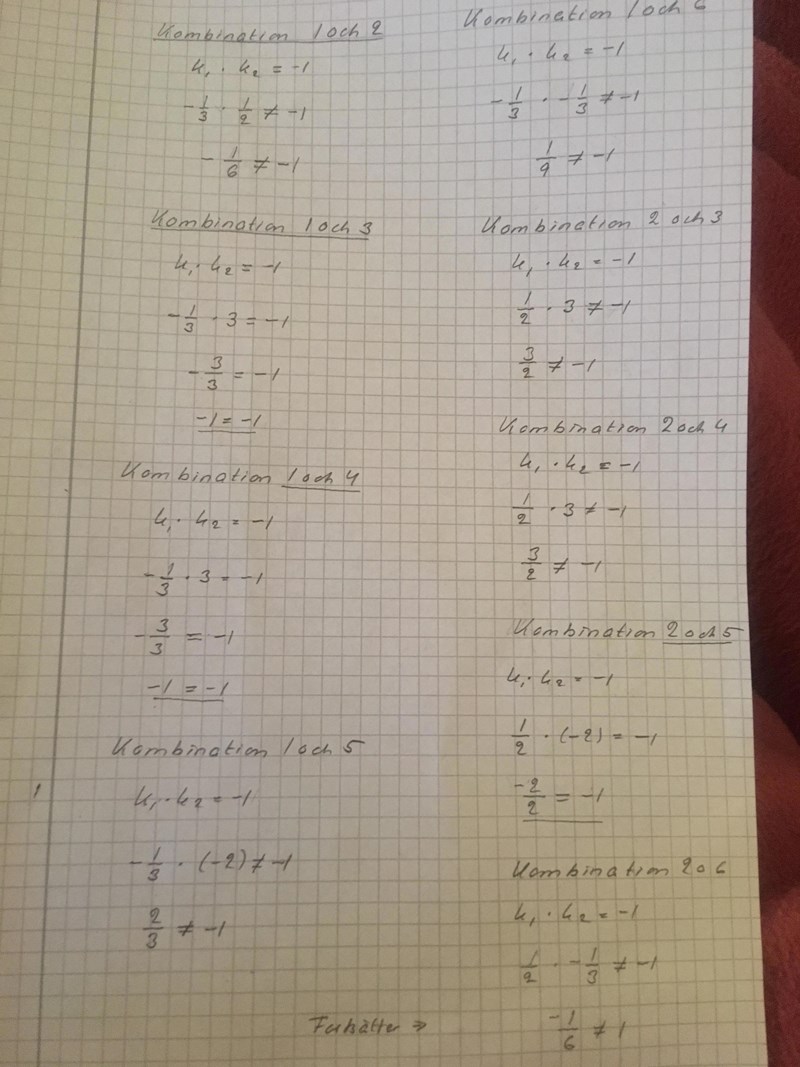 Kombination 1 och 2
k₁ · k₂ = -1
-1/3 · 1/2 ≠ -1
-1/6 ≠ -1
Kombination 1 och 3
k₁ · k₂ = -1
-1/3 · 3 = -1
-3/3 = -1
-1 = -1
Kombination 1 och 4
k₁ · k₂ = -1
-1/3 · 3 = -1
-3/3 = -1
-1 = -1
Kombination 1 och 5
k₁ · k₂ = -1
-1/3 · (-2) ≠ -1
2/3 ≠ -1
Kombination 1 och 6
k₁ · k₂ = -1
-1/3 · -1/3 ≠ -1
1/9 ≠ -1
Kombination 2 och 3
k₁ · k₂ = -1
1/2 · 3 ≠ -1
3/2 ≠ -1
Kombination 2 och 4
k₁ · k₂ = -1
1/2 · 3 ≠ -1
3/2 ≠ -1
Kombination 2 och 5
k₁ · k₂ = -1
1/2 · (-2) = -1
-2/2 = -1
Kombination 2 o 6
k₁ · k₂ = -1
1/2 · -1/3 ≠ -1
-1/6 ≠ 1
⇒